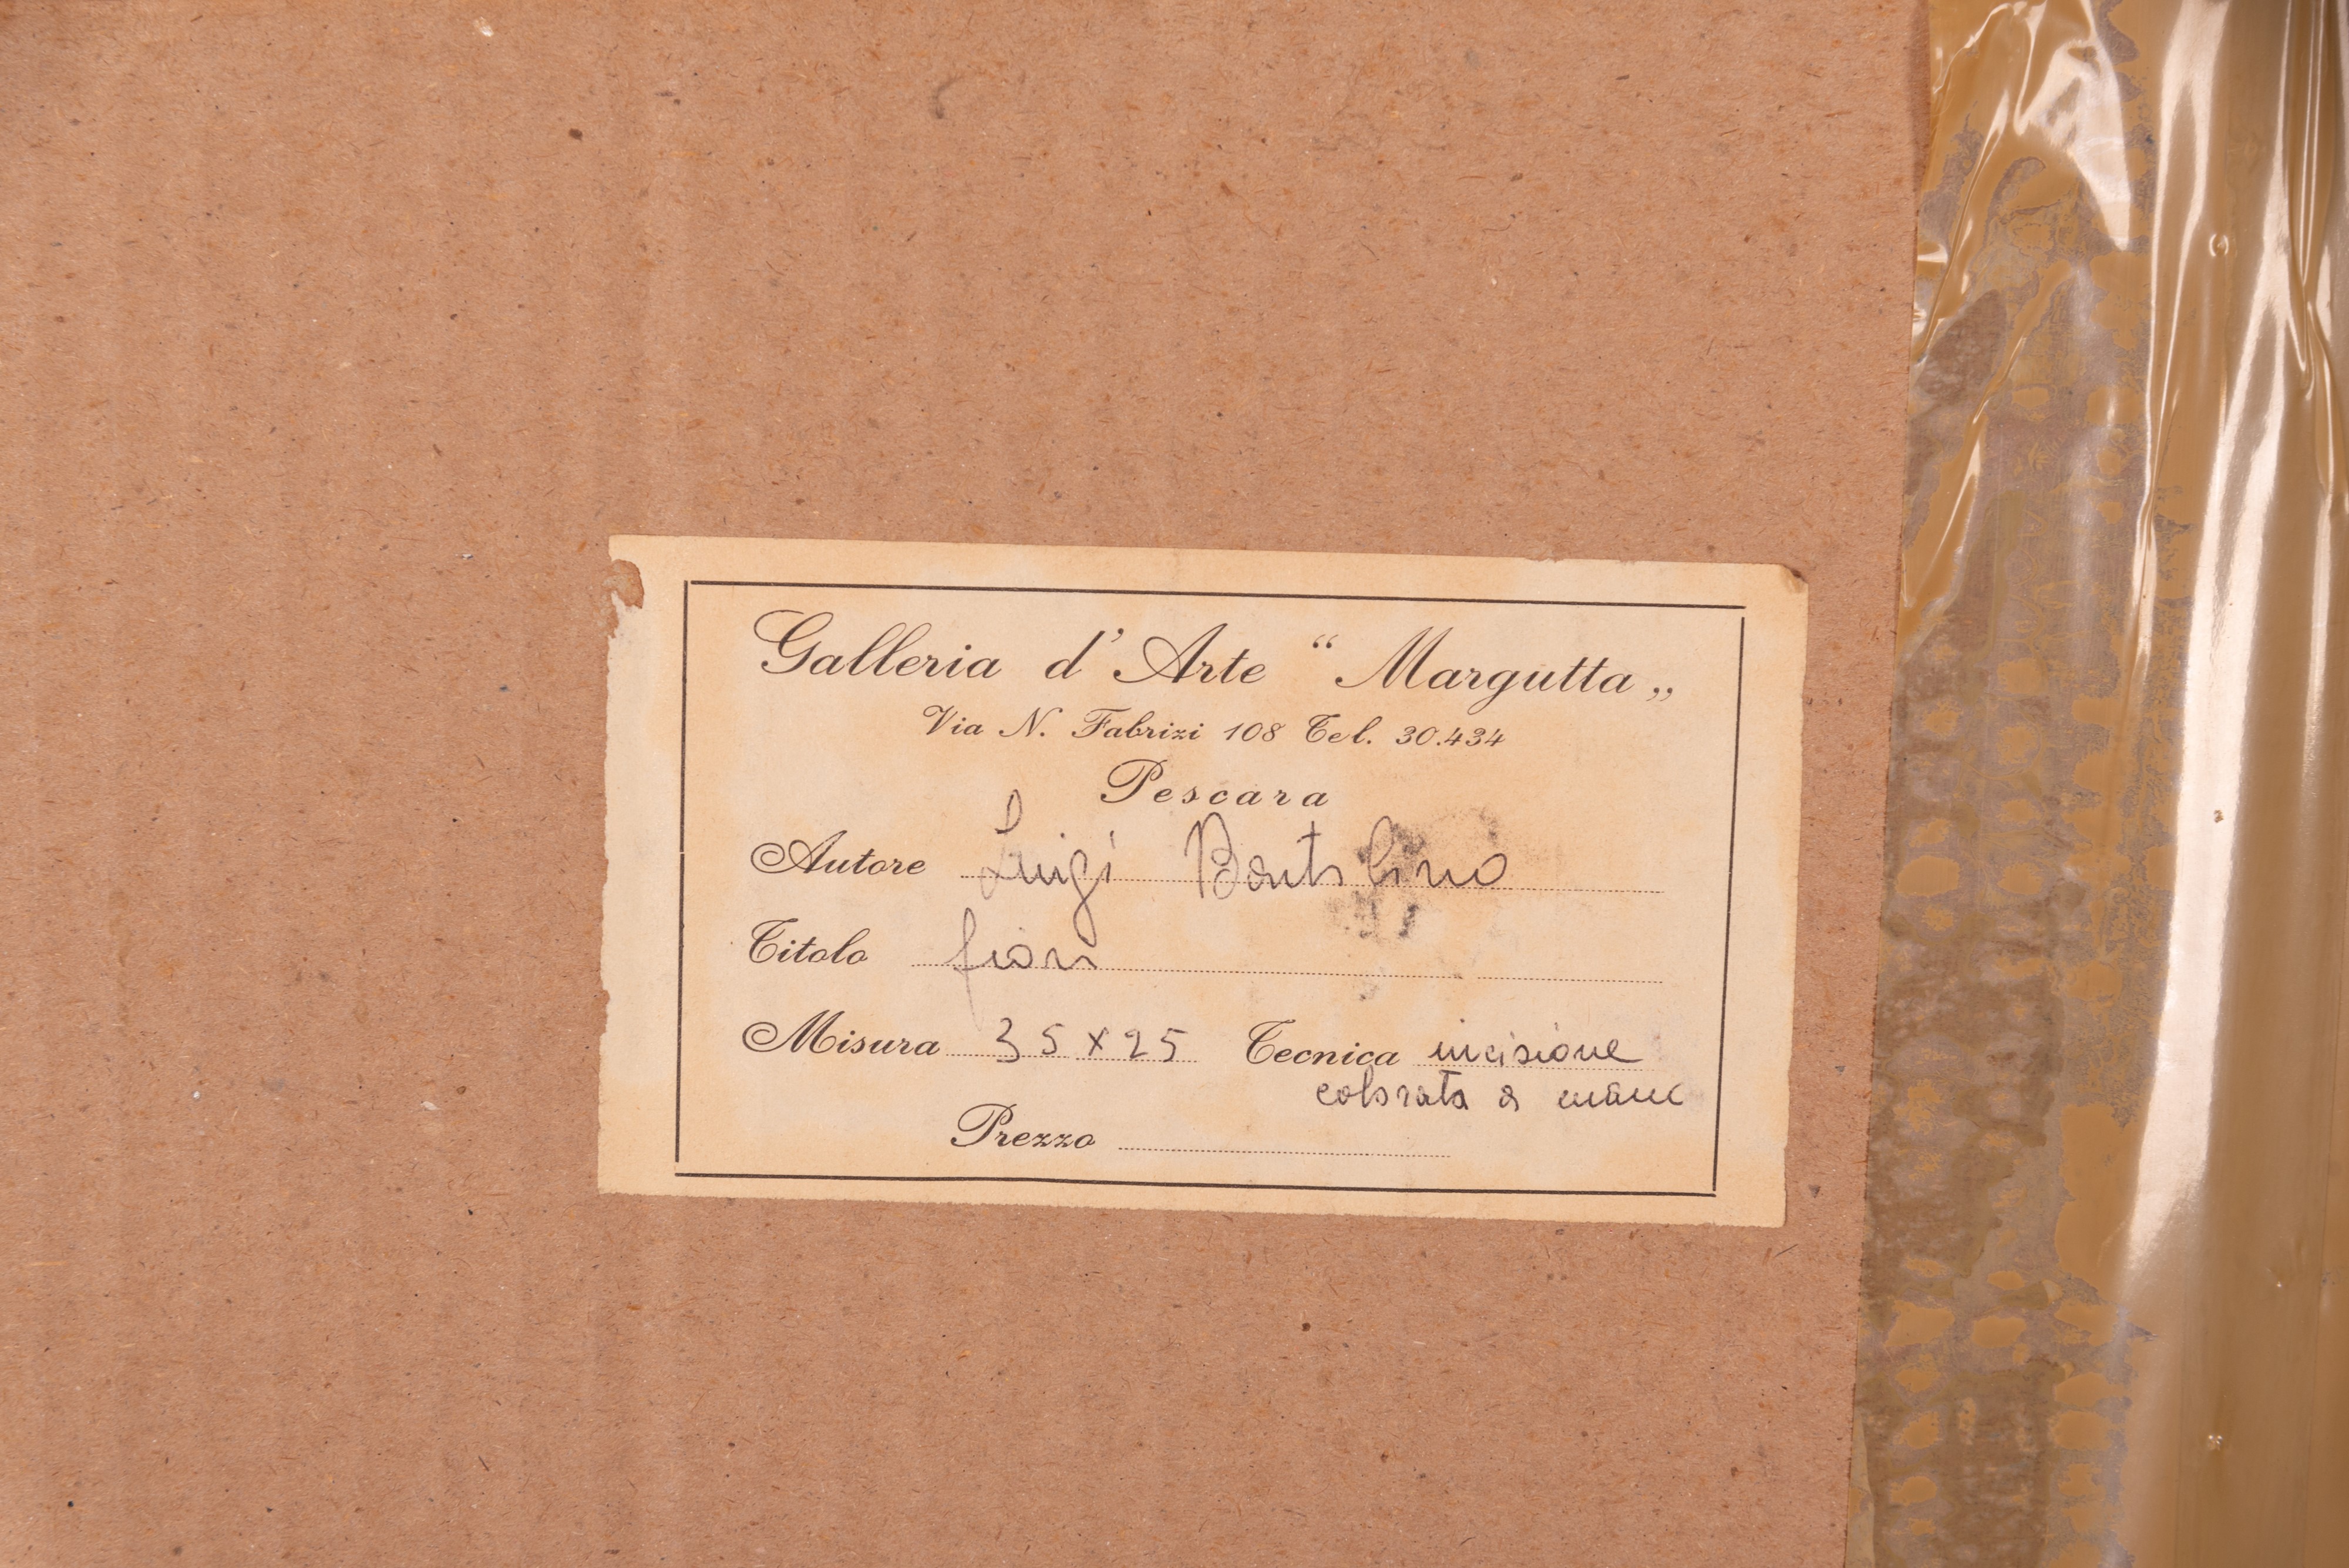 Galleria d'Arte “Margutta„
Via N. Fabrizi 108 Tel. 30.434
Pescara
Autore Luigi
Titolo fiori
Misura 35x25 Tecnica incisione
colorata a mano
Prezzo